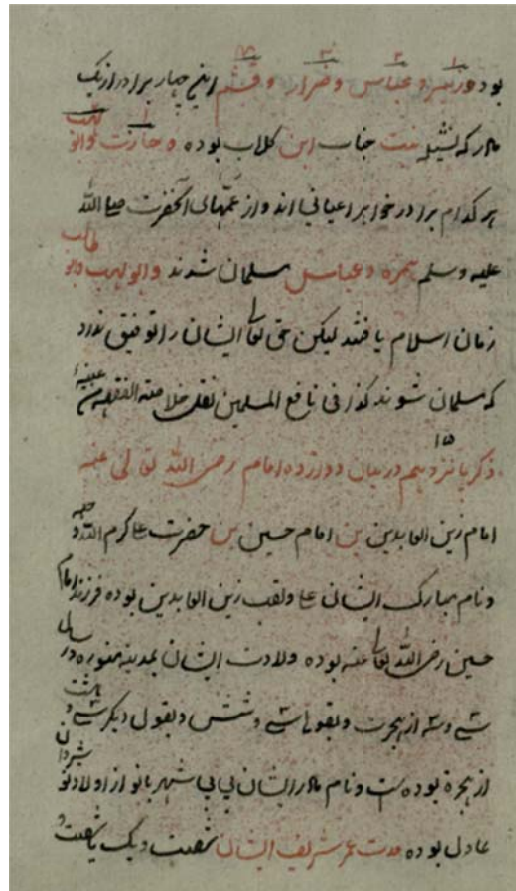 بوده زبیر و عباس و ضرار و قثم این چهار برادر از یک
مادر که نتیله بنت خباب ابن کلاب بوده و حارث و ابو لهب
هر کدام برادر خواهر اعیانی اند و از عمهای آنحضرت صلی الله
علیه وسلم حمزه و عباس مسلمان شوند و ابو لهب و ابو طالب
زمان اسلام یافتند لیکن حق تعالی ایشان را توفیق نداد
که مسلمان شوند کذا فی نافع المسلمین نقل خلاصة الفقه
۱۵
ذکر پانزدهم در بیان دوازده امام رضی الله تعالی عنه
امام زین العابدین بن امام حسین بن حضرت علی کرم الله وجهه
و نام مبارک ایشان علی و لقب زین العابدین بوده فرزند امام
حسین رضی الله تعالی عنه بوده ولادت ایشان بمدینه منوره در سال
سی و سه از هجرت و بقولی سی و شش و بقول دیگر سی و هشت
از هجرة بوده است و نام مادر ایشان بی بی شهر بانو از اولاد نوشیروان
عادل بوده مدت عمر شریف ایشان شصت و یک یا شصت و